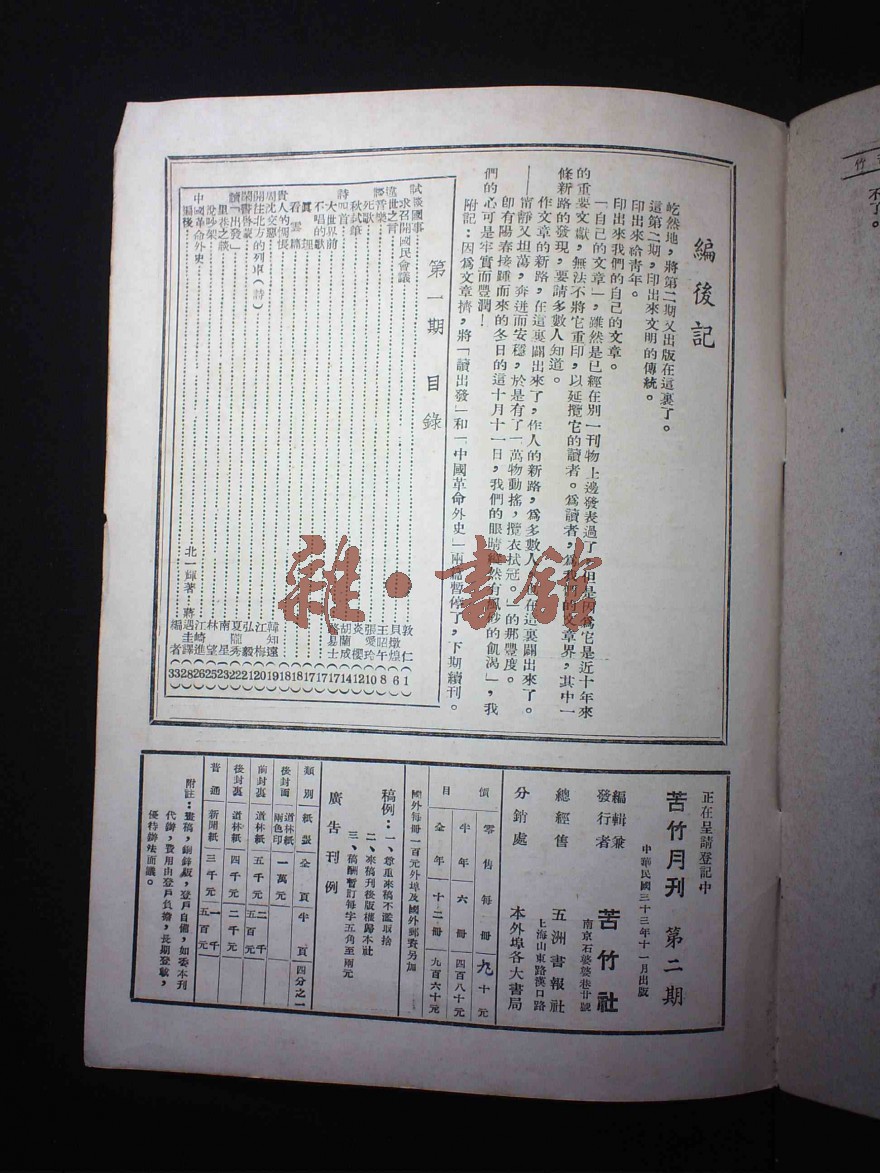 編後記
屹然地,將第二期又出版在這裏了。
這第二期,印出來文明的傳統。
印出來給青年。
印出來我們的自己的文章。
「自己的文章」,雖然是已經在別一刊物上邊發表過了,但是因爲它是近十年來
的重要文獻,無法不將它重印,以延攬它的讀者。爲讀者,爲我們的文章界,其中一
條新路的發現,要請多數人知道。
作文章的新路,在這裏闢出來了,作人的新路,爲多數人,也在這裏闢出來了。
——甯靜又坦蕩,奔迸而安穩,於是有了「萬物動搖,攬衣拭冠。」的那豐度。
卽有陽春接踵而來的冬日的這十月十一日,我們的眼睛
們的心可是牢實而豐潤!
附記:因爲文章擠,將「讀出發」和「中國革命外史」兩篇暫停了,下期續刊。
第一期 目錄
試談國事 敦仁 1
求召開國民會議 貝敦煌 6
違世之言 王昭午 8
談音樂 張愛玲 10
死歌 炎櫻 12
秋試筆 胡蘭成 14
詩四首 路易士 17
大世界前 17
不唱的歌 17
眞理 18
看雲篇 18
貴人的惆悵 韓知遠 18
周沈交惡 江梅 19
開往北方的列車(詩) 弘毅 20
閑書啓蒙 夏隴秀 21
讀「出發」 南星 22
里巷之談 林望 23
沒吵架 江崎進 25
中國革命外史 北一輝著 蔣遇圭譯 28
編後 編者 33
正在呈請登記中
苦竹月刊 第二期
中華民國三十三年十一月出版
編輯兼發行者 苦竹社
南京石婆婆巷廿號
總經售 五洲書報社
上海山東路漢口路
分銷處 本外埠各大書局
價目
零售每冊 九十元
半年六冊 四百八十元
全年十二冊 九百六十元
國外每冊一百元外埠及國外郵費另加
稿例:一、尊重來稿不濫取捨
二、來稿刊後版權歸本社
三、稿酬暫訂每字五角至兩元
廣告刊例
類別 紙張 全頁 半頁 四分之一
後封面 道林紙兩色印 一萬元
前封裏 道林紙 五千元 二千五百元
後封裏 道林紙 四千元 二千元
普通 新聞紙 三千元 一千五百元
附註:畫稿,銅鋅版,登戶自備,如委本刊
代辦,費用由登戶負擔,長期登載,
優待辦法面議。
雜·書館
竹
不了。